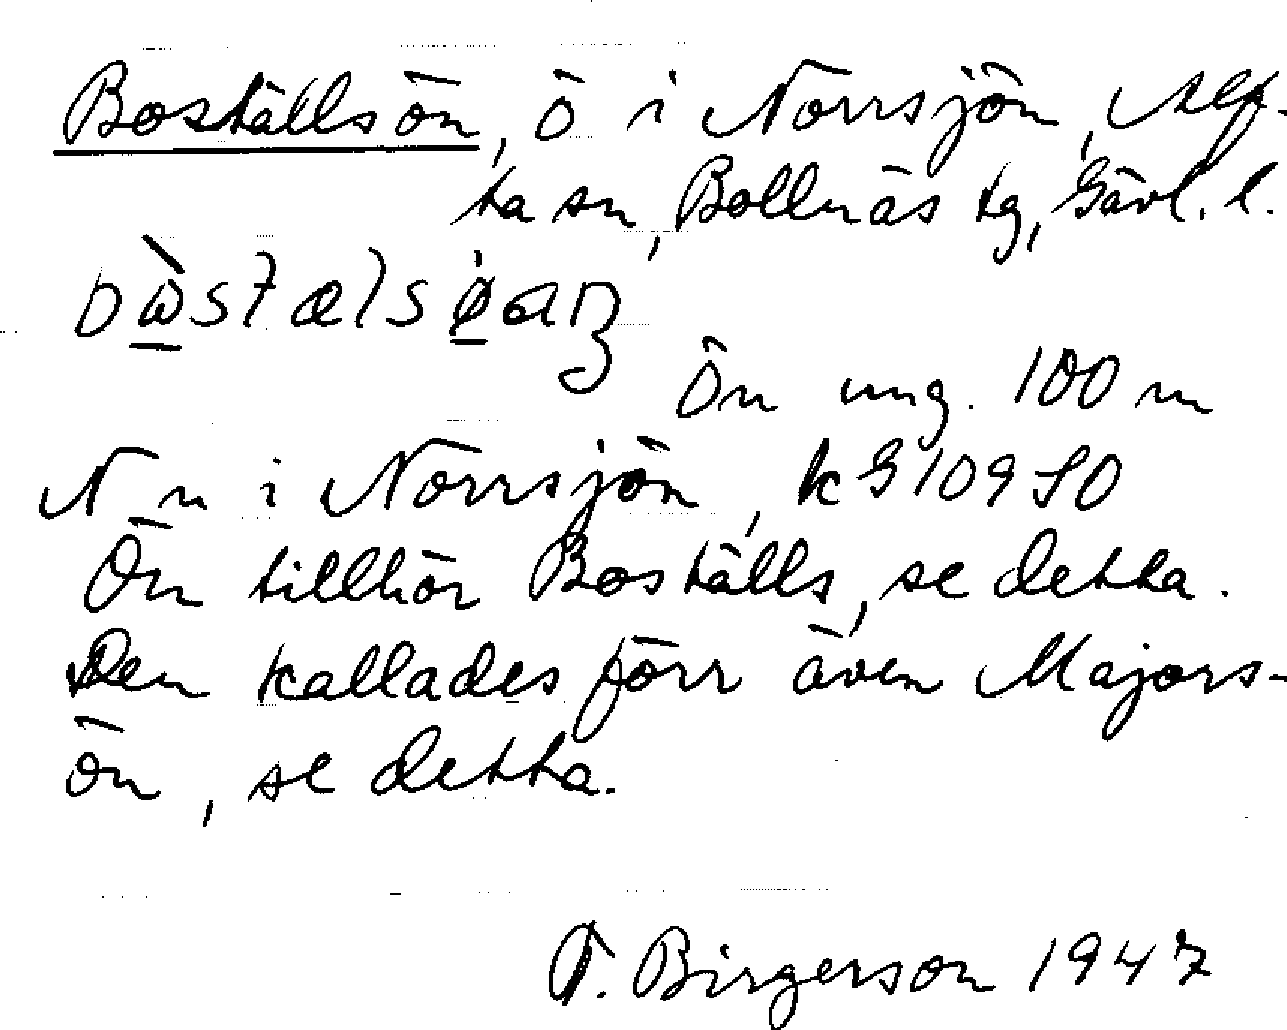 Boställsön, ö i Norrsjön, Alf-
ta sn, Bollnäs tg, Gävl. l.
Ön ung. 100 m
N n i Norrsjön, k G 109 SO
Ön tillhör Boställs, se detta.
Den kallades förr även Majors-
ön, se detta.
Birgerson 1947